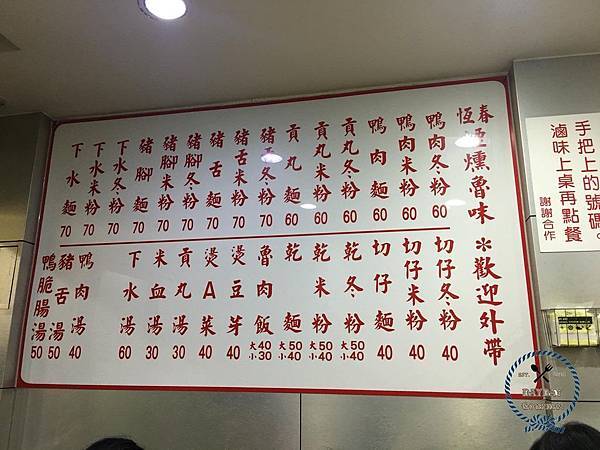 恆春煙燻魯味＊歡迎外帶
鴨肉冬粉 60
鴨肉米粉 60
鴨肉麵 60
貢丸冬粉 60
貢丸米粉 60
貢丸麵 60
豬舌冬粉 70
豬舌米粉 70
豬舌麵 70
豬腳冬粉 70
豬腳米粉 70
豬腳麵 70
下水冬粉 70
下水米粉 70
下水麵 70
切仔冬粉 40
切仔米粉 40
切仔麵 40
乾冬粉 大50 小40
乾米粉 大50 小40
乾麵 大50 小40
魯肉飯 大40 小30
燙豆芽 40
燙A菜 40
貢丸湯 30
米血湯 30
下水湯 60
鴨肉湯 40
豬舌湯 50
鴨脆腸湯 50
手把上的號碼。
滷味上桌再點餐
謝謝合作
EST.